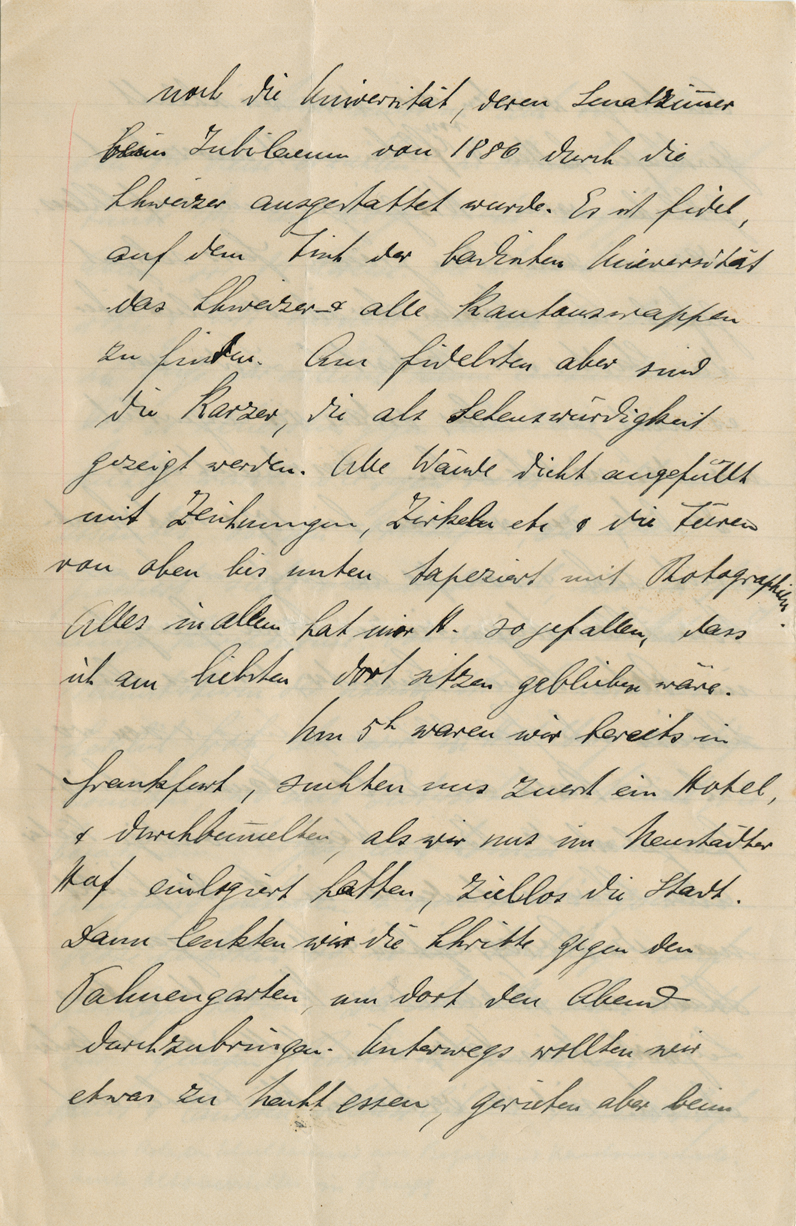 noch die Universität, deren Senatzimmer
beim Jubilaeum von 1886 durch die
Schweizer ausgestattet wurde. Es ist fidel,
auf dem der badischen Universität
das Schweizer- & alle Kantonswappen
zu finden. Am fidelsten aber sind
die Karzer, die als Sehenswürdigkeit
gezeigt werden. Alle Wände dicht angefüllt
mit Zeichnungen, Zirkeln etc & die Türen
von oben bis unten tapeziert mit Photographien.
Alles in allem hat mir H. so gefallen, dass
ich am liebsten dort sitzen geblieben wäre.
Um 5h waren wir bereits in
Frankfurt, suchten uns zuerst ein Hotel,
& durchbummelten, als wir uns im Neustädter
Hof einlogiert hatten, ziellos die Stadt.
Dann lenkten wir die Schritte gegen den
Palmengarten, um dort den Abend
durchzubringen. Unterwegs wollten wir
etwas zu Nacht essen, gerieten aber beim